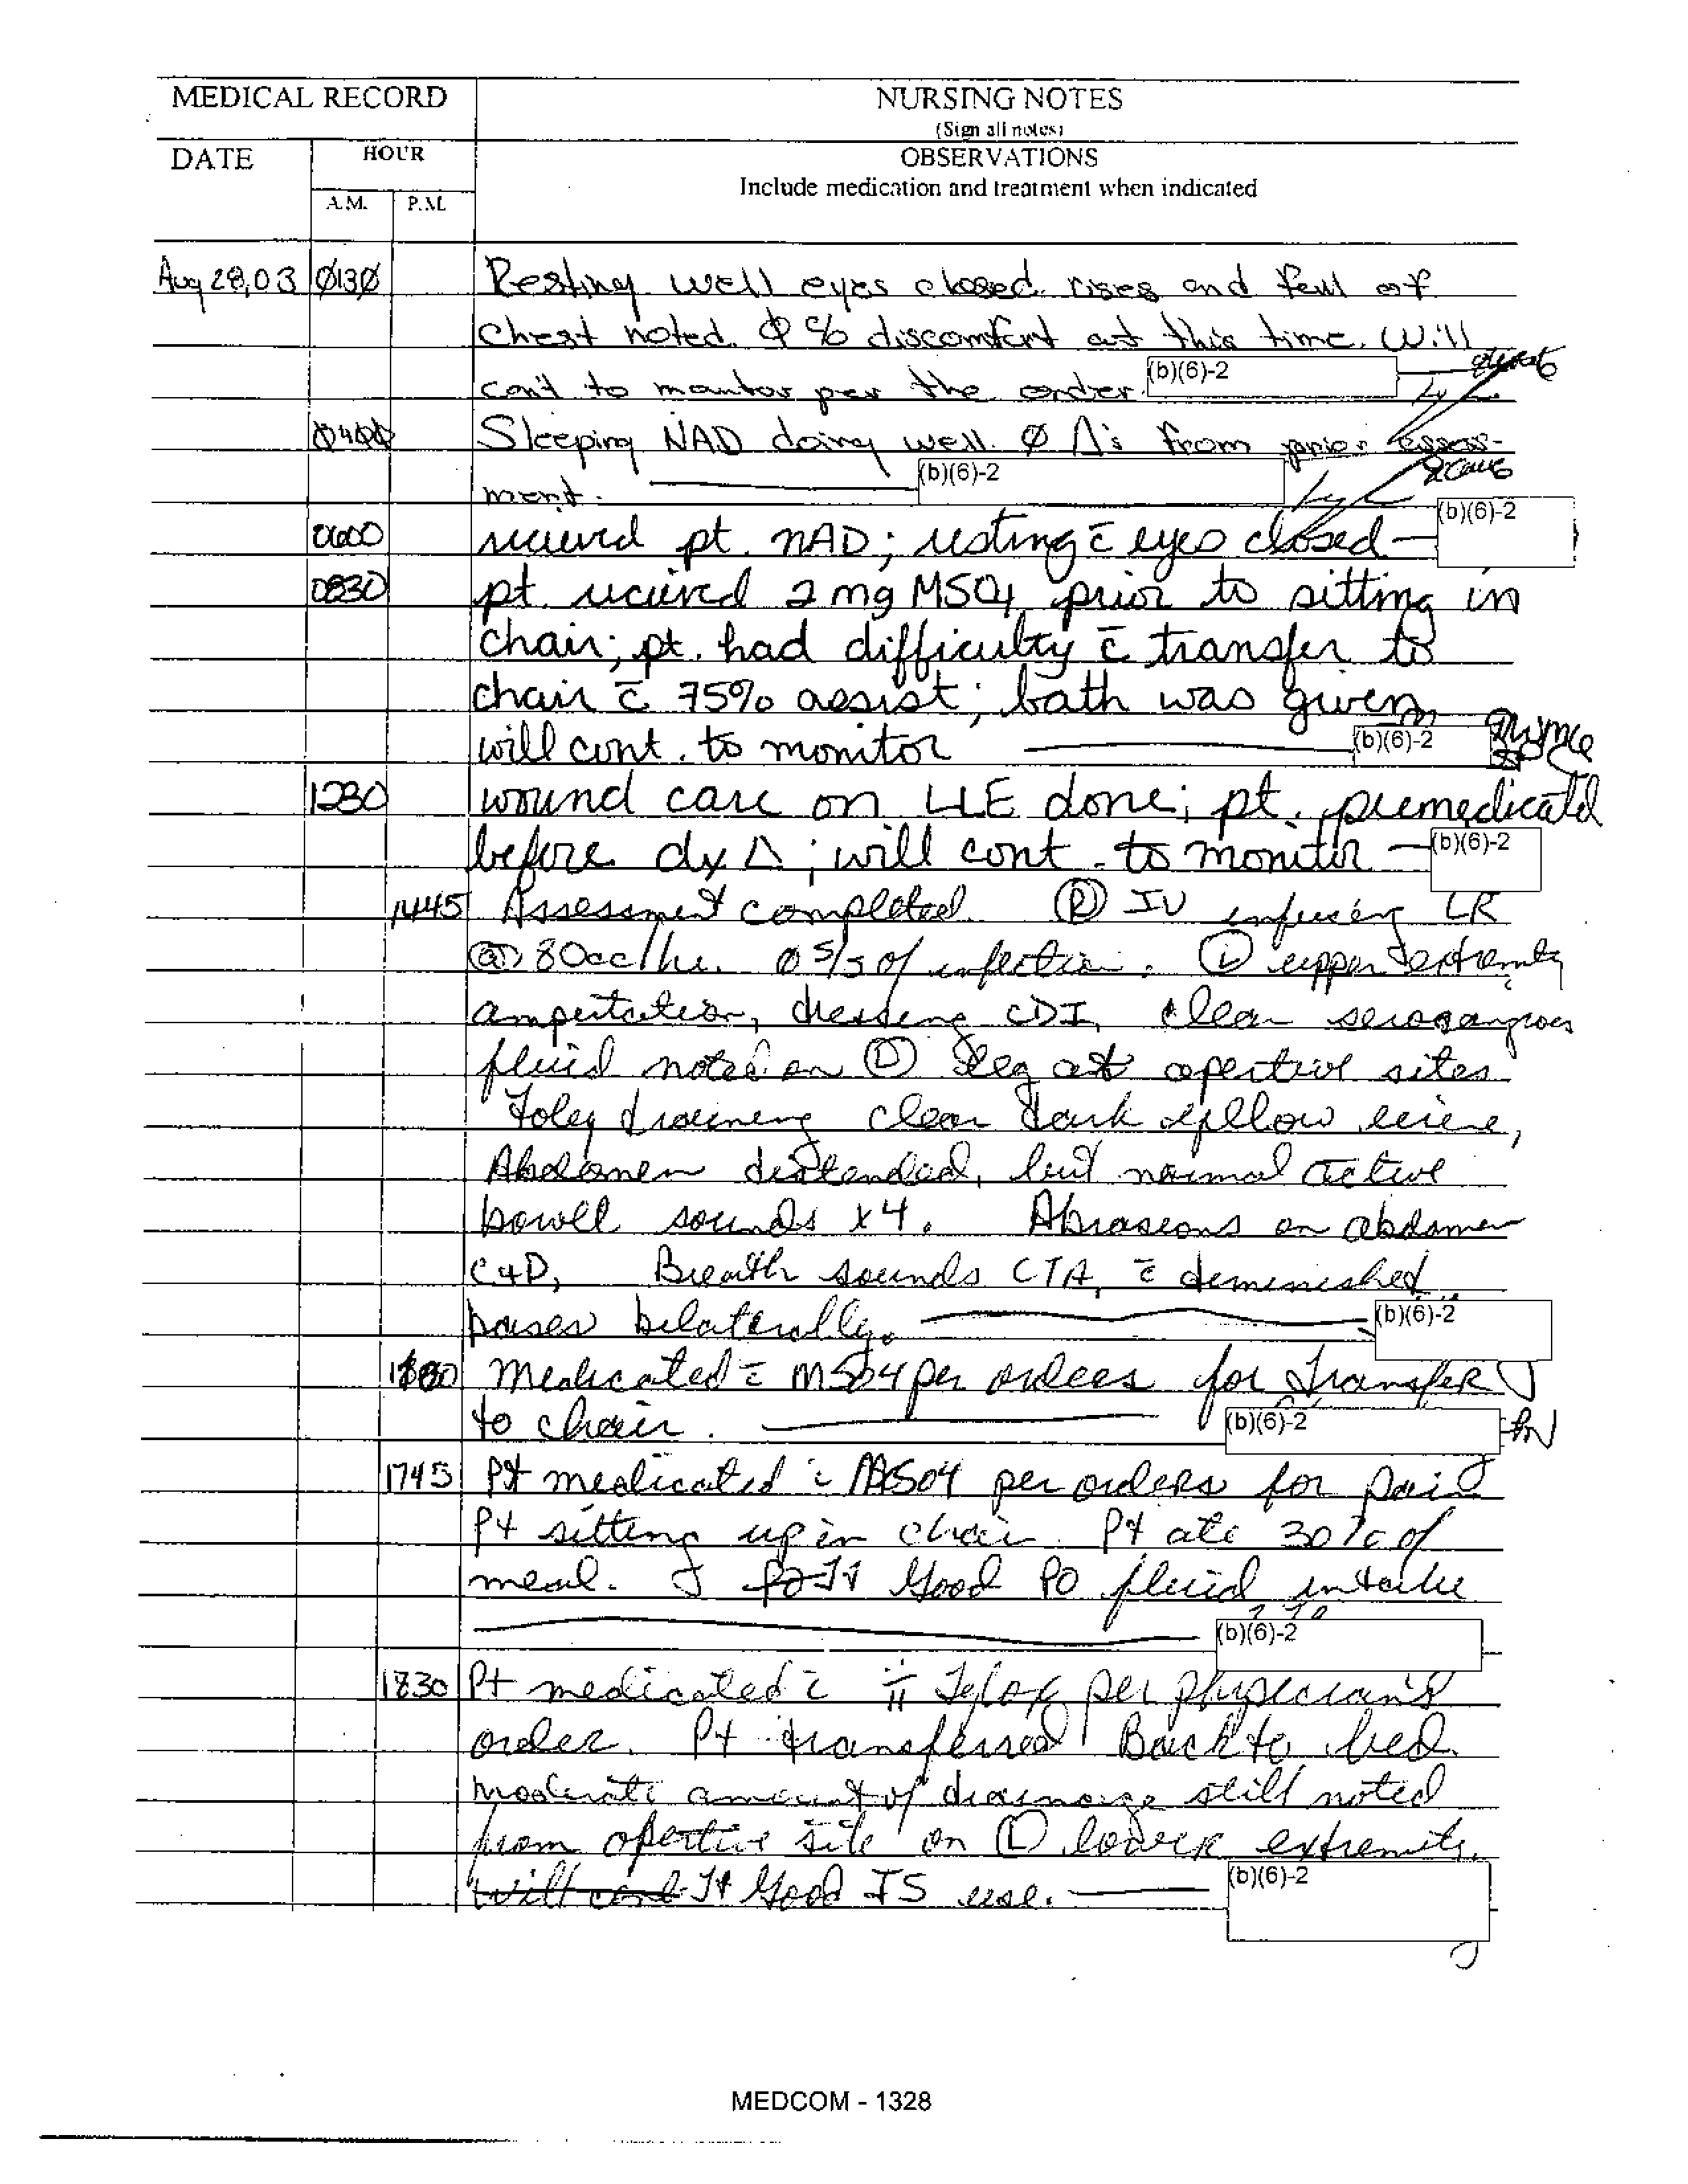 MEDICAL RECORD
NURSING NOTES
(Sign all notes)
DATE
HOUR
OBSERVATIONS
Include medication and treatment when indicated
A.M.
P.M.
Aug 28,03 0130 Resting well eyes closed rises and fall of
chest noted. Ø c/o discomfort at this time. Will
con't to monitor per the order. (b)(6)-2
0400 Sleeping NAD doing well. Ø Δ's from prior assess-
ment. (b)(6)-2
0600 received pt. NAD; resting c̄ eyes closed (b)(6)-2
0830 pt. received 2 mg MSO4 prior to sitting in
chair; pt. had difficulty c̄ transfer to
chair c̄ 75% assist; bath was given
will cont. to monitor (b)(6)-2
1230 wound care on LLE done; pt. premedicated
before dx Δ; will cont. to monitor (b)(6)-2
1445 Assessment completed. Ⓡ IV infusing LR
@ 80cc/hr. Ø s/s of infection. Ⓛ upper extremity
amputation, dressing CDI, clear
fluid noted on Ⓛ leg at opertive sites
Foley draining clear dark yellow urine,
Abdomen distended, but normal active
bowel sounds x4. Abrasions on abdomen
C+D, Breath sounds CTA, c̄ deminished
bases bilaterally. (b)(6)-2
Medicated c̄ MSO4 per orders for transfer
to chair. (b)(6)-2 RN
1745 Pt medicated c̄ MSO4 per orders for pain
Pt sitting up in chair. Pt ate 30% of
meal. Good PO fluid intake
(b)(6)-2
1830 Pt medicated c̄ ii Tylox per physician's
order. Pt transferred Back to bed.
moderate amount of drainage still noted
from opertive site on Ⓛ lower extremity.
will cont Good IS use. (b)(6)-2
MEDCOM - 1328